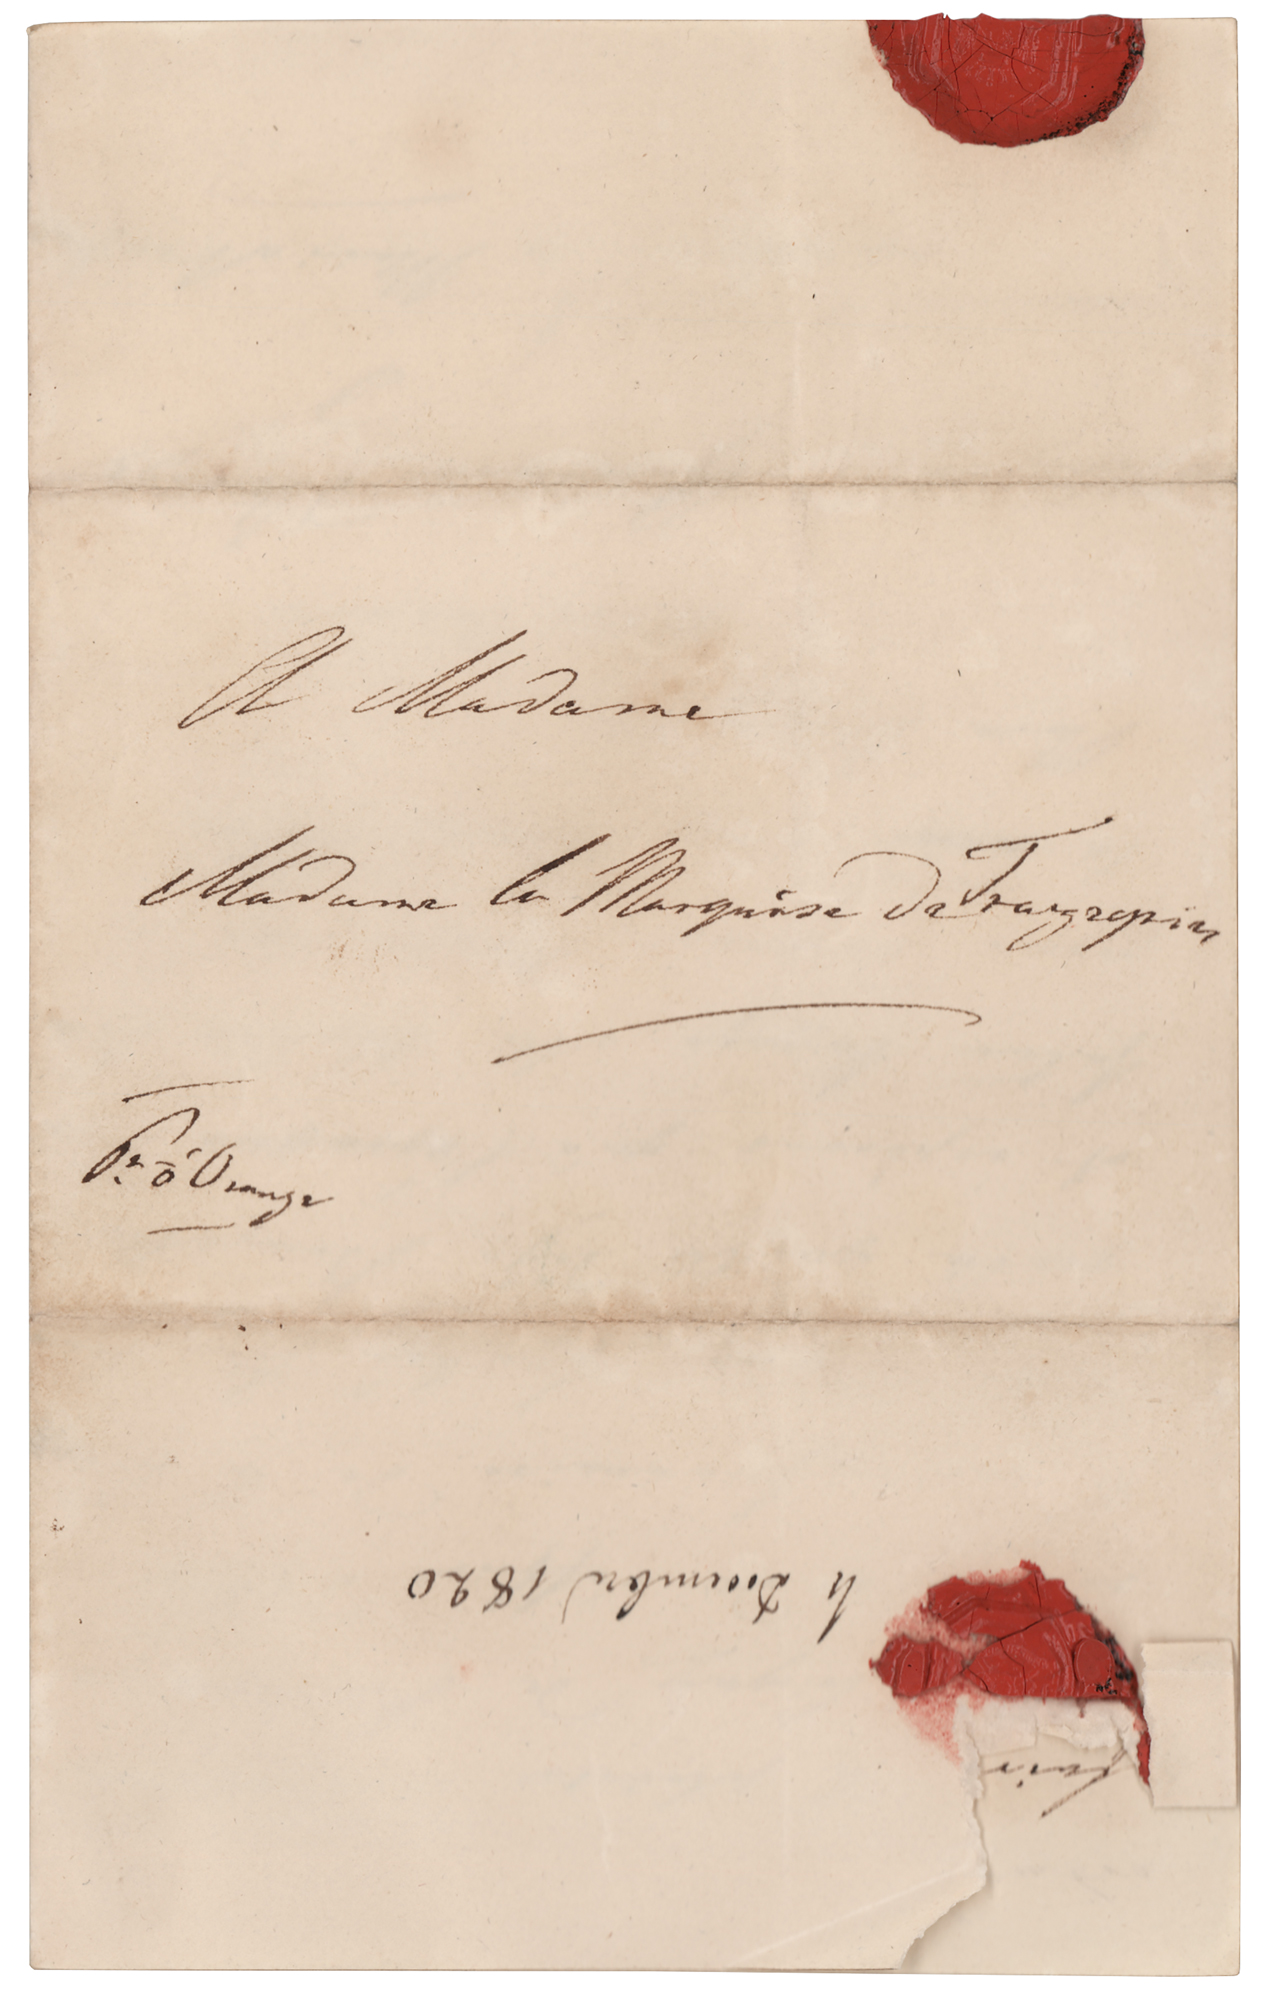 A Madame
Madame la Marquise de Trazegnies
Pce d'Orange
4 Decembre 1820